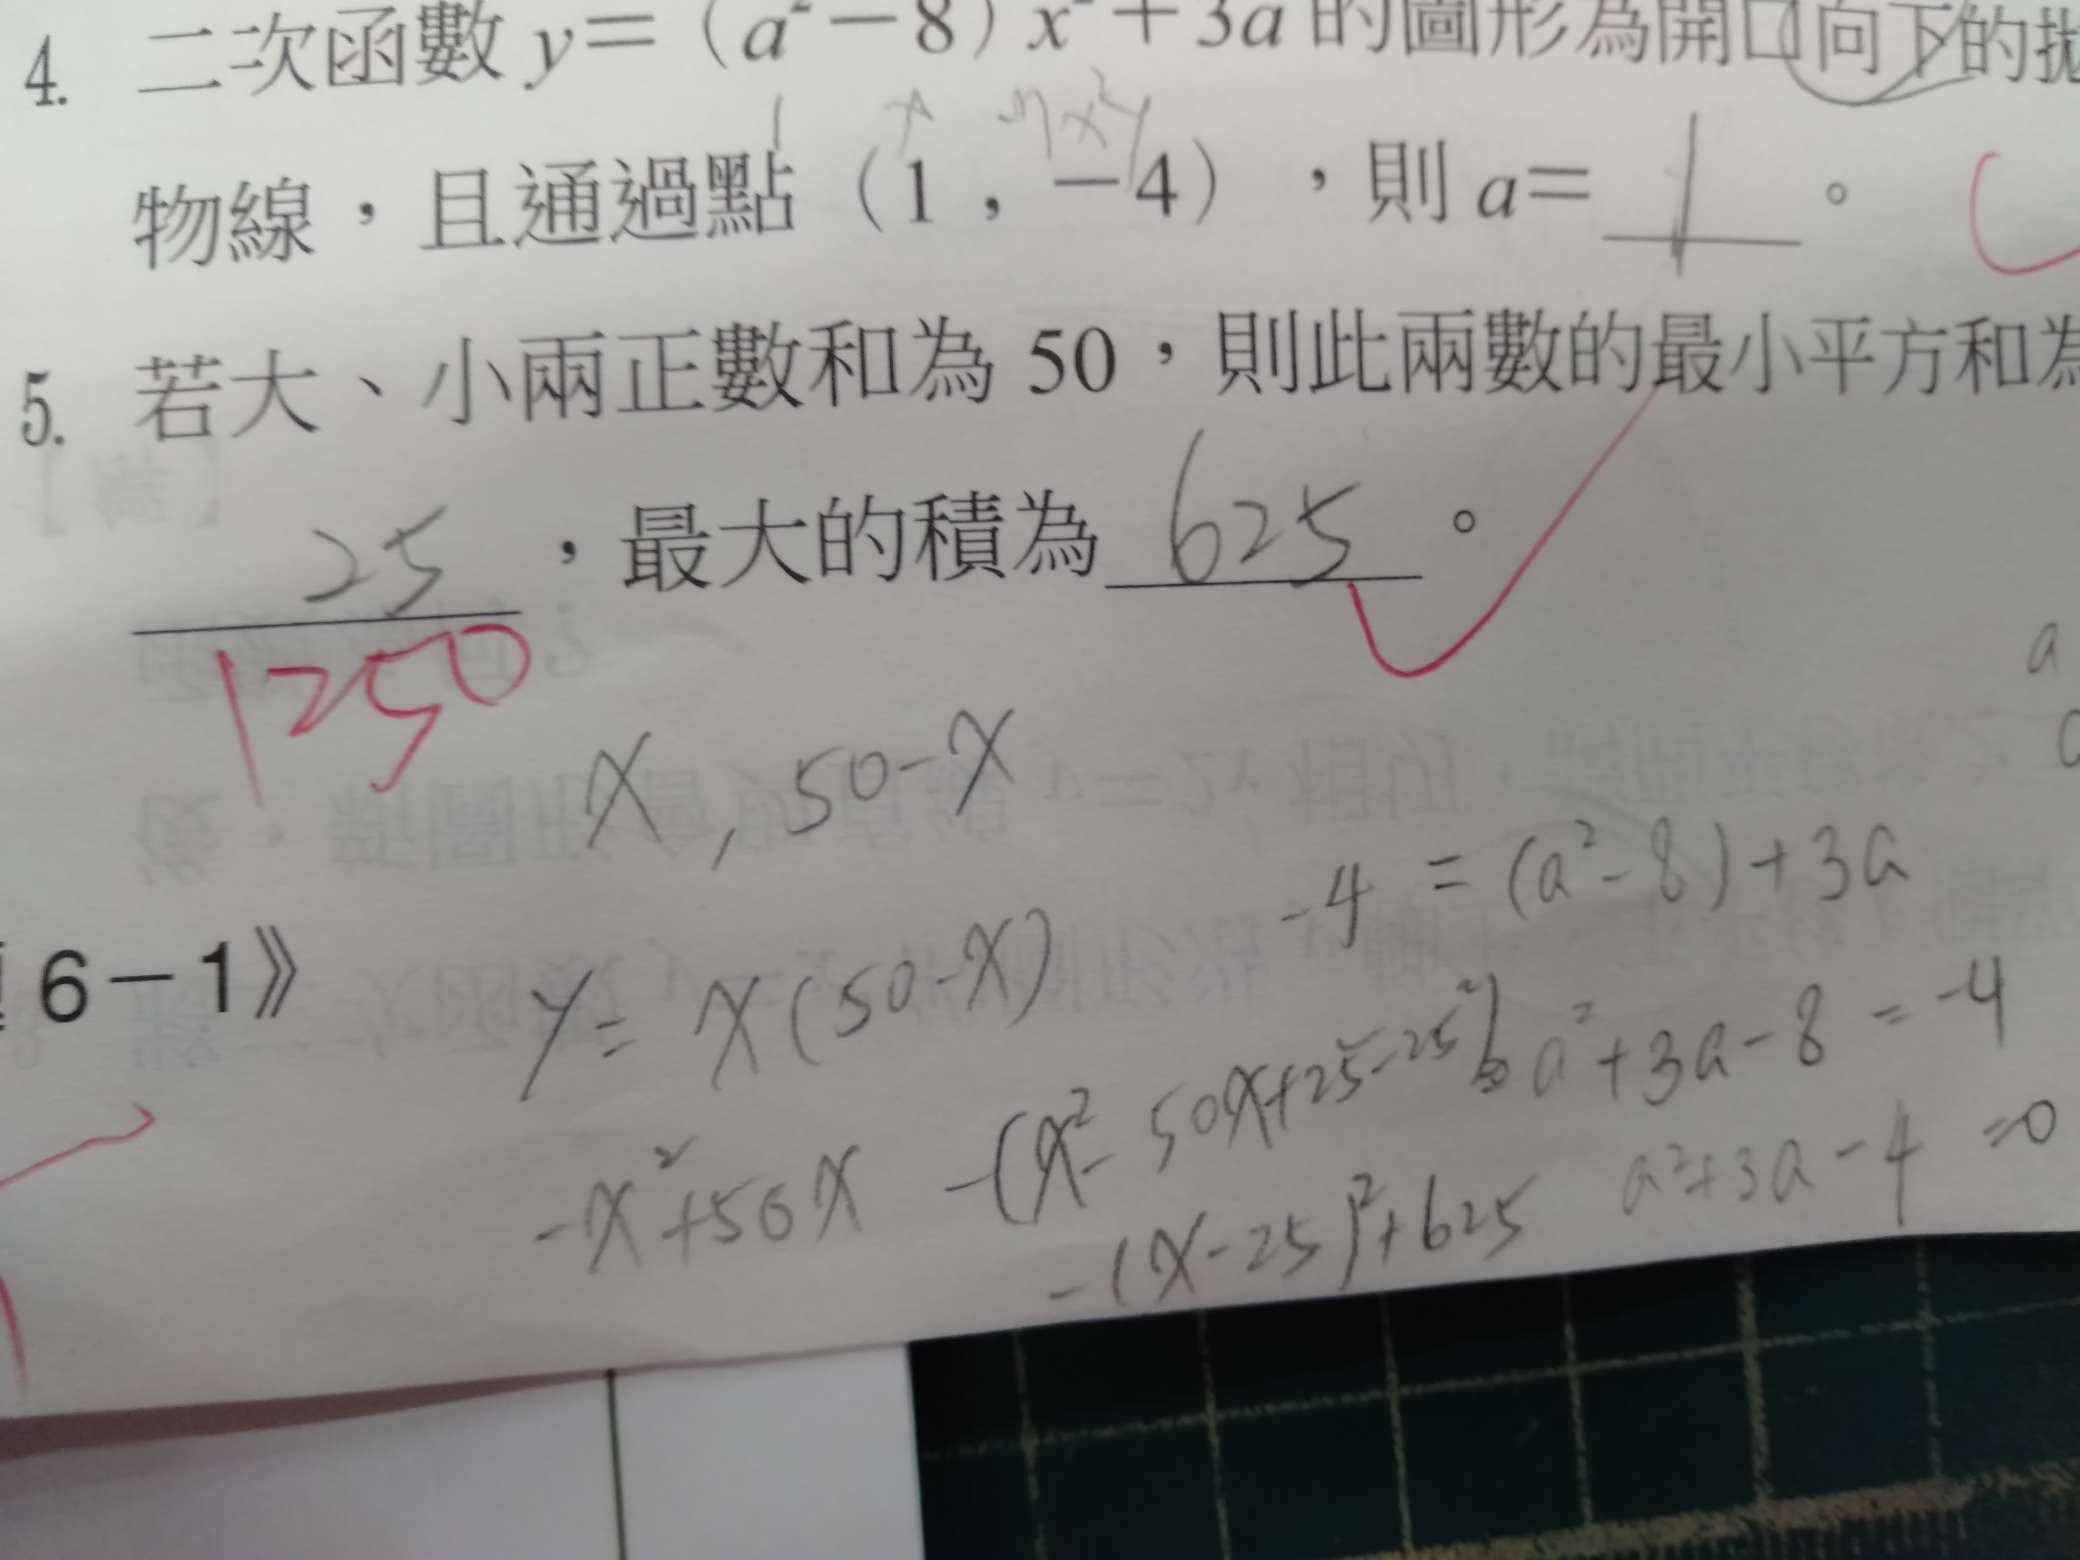 4. 二次函數 y=(a²-8)x²+3a 的圖形為開口向下的拋
物線，且通過點(1,-4)，則 a= 1 。
5. 若大、小兩正數和為 50，則此兩數的最小平方和為
25 ，最大的積為 625 。
1250
x, 50-x
-4=(a²-8)+3a
6-1》
y=x(50-x)
a²+3a-8=-4
-x²+50x
-(x²-50x+25²-25²)
a²+3a-4=0
-(x-25)²+625